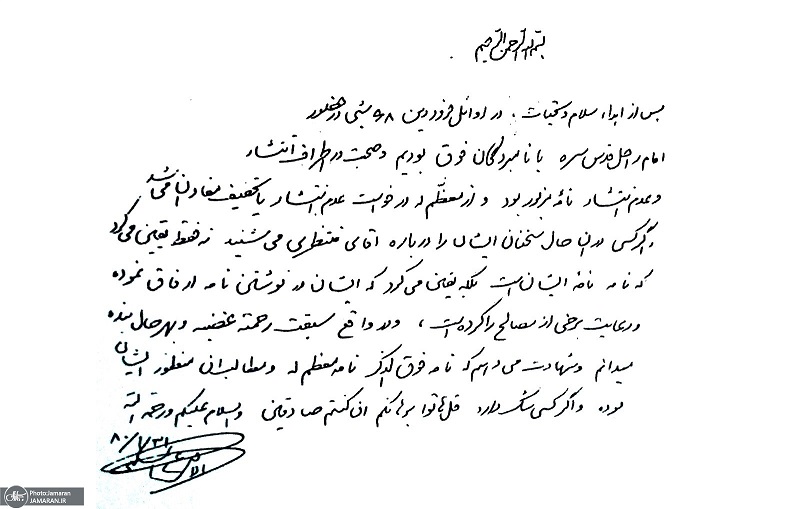 بسم الله الرحمن الرحیم
پس از اهداء سلام و تحیات، در اوائل فروردین ۶۸ شمسی در حضور
امام راحل قدس سره با نامبردگان فوق بودیم و صحبت در اطراف انتشار
و عدم انتشار نامهٔ مزبور بود و از معظّم له درخواست عدم انتشار یا تخفیف مفاد آن می شد
و اگر کسی در آن حال سخنان ایشان را درباره آقای منتظری می شنید نه فقط یقین می کرد
که نامه نامهٔ ایشان است بلکه یقین می کرد که ایشان در نوشتن نامه ارفاق نموده
و رعایت برخی از مصالح را کرده است، و در واقع سبقت رحمته غضبه و بهر حال بنده
میدانم و شهادت می دهم که نامه فوق الذکر نامه معظم له و مطالب آن منظور ایشان
بوده و اگر کسی شک دارد قل هاتوا برهانکم ان کنتم صادقین والسلام علیکم و رحمة الله
۸۰/۱/۳۱
Photo:Jamaran
JAMARAN.IR